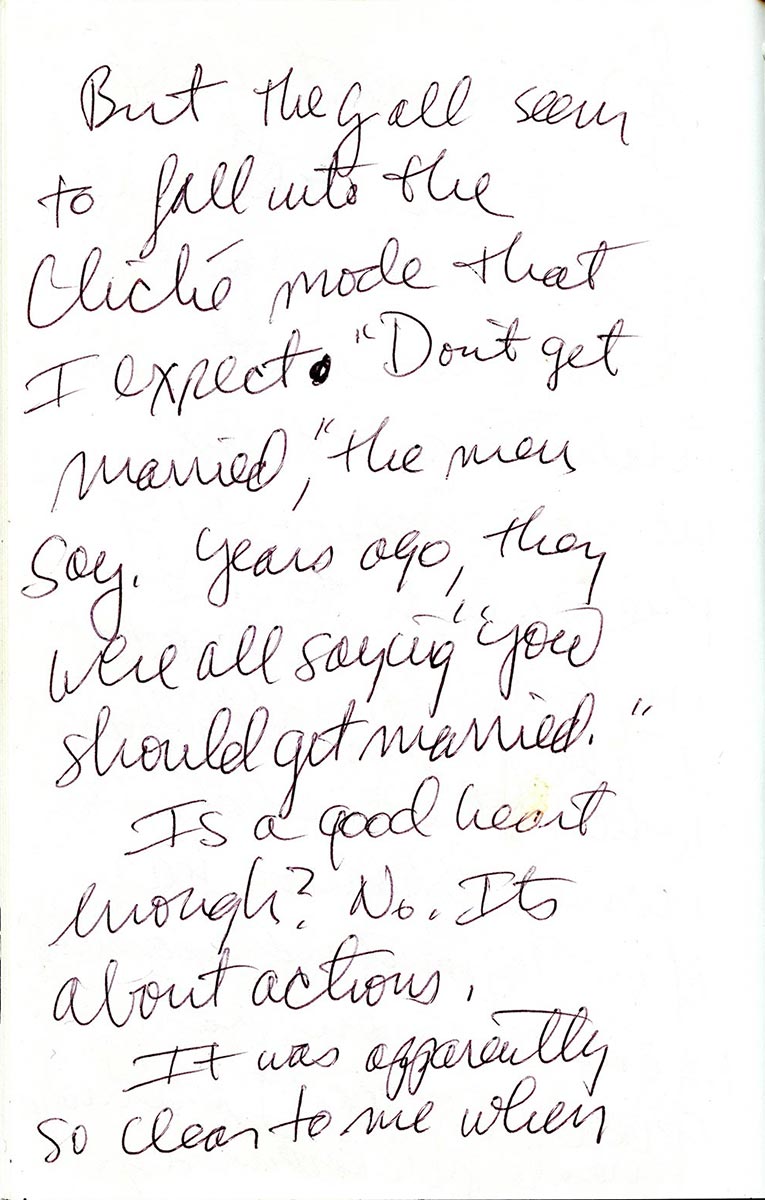 But they all seem
to fall into the
Cliché mode that
I expect. "Don't get
married," the men
say. Years ago, they
were all saying "you
should get married."
Is a good heart
enough? No. Its
about actions.
It was apparently
so clear to me when